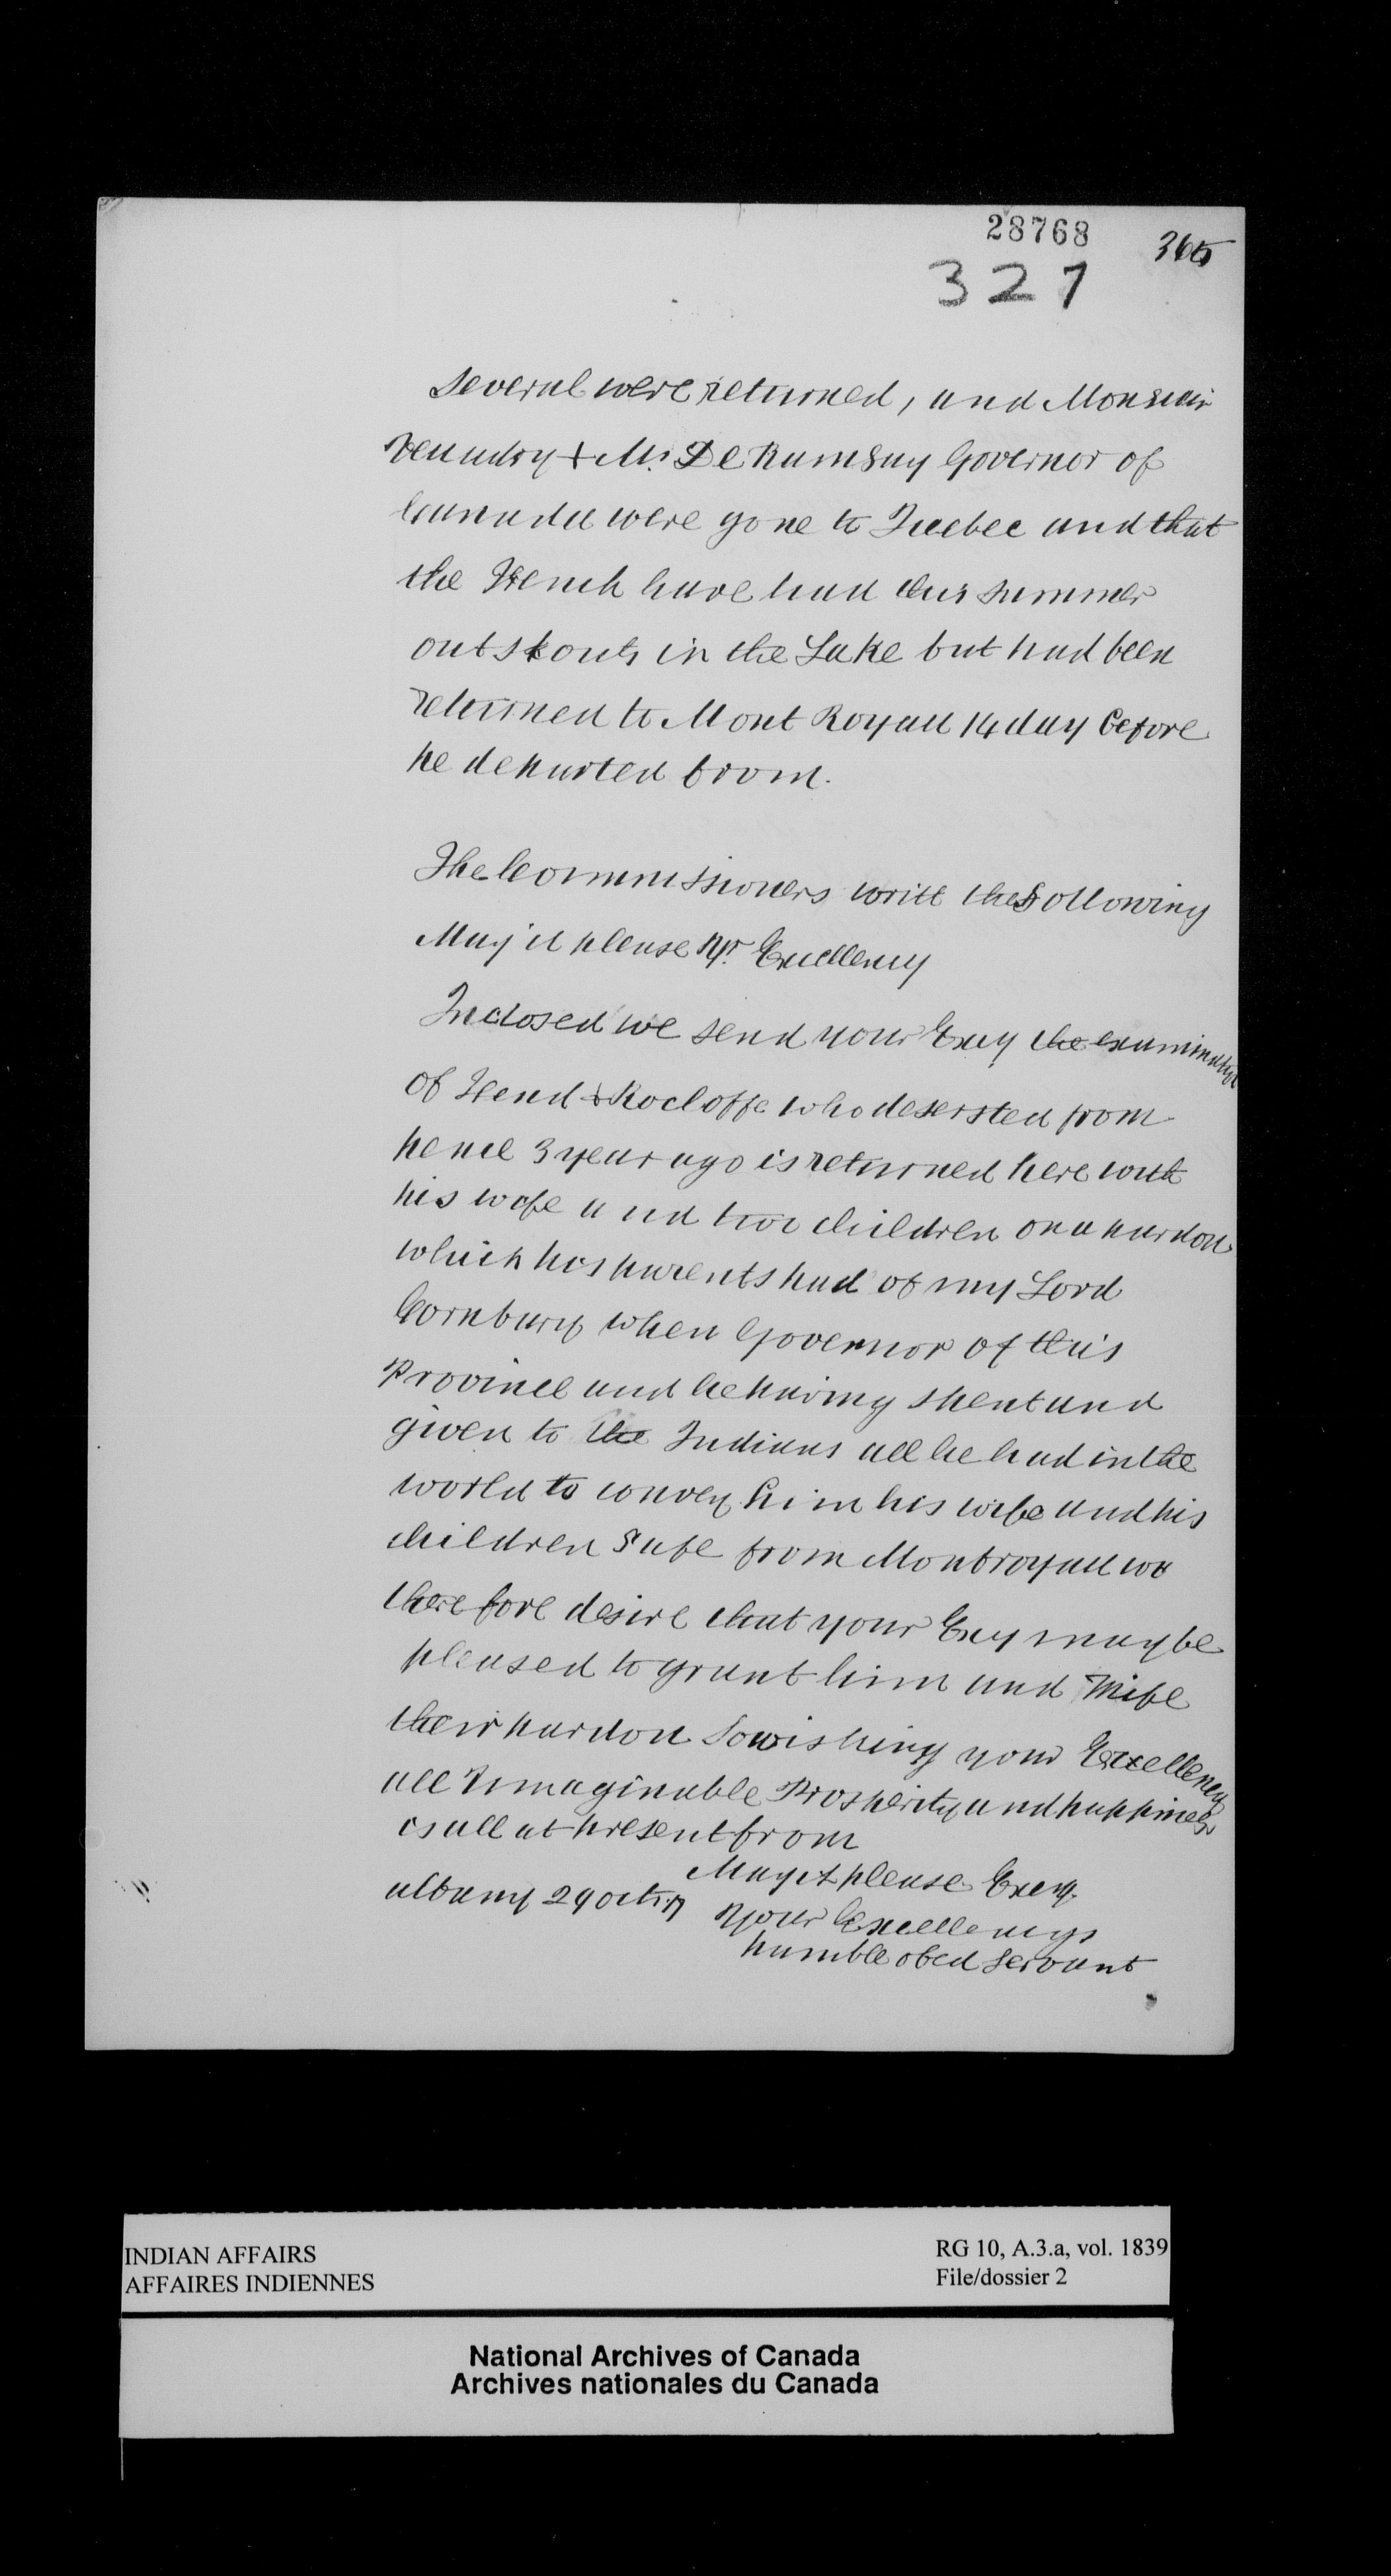 28768
365
327
Several were returned, and Monsieir
& Mr. De Ramsay Governor of
Canada were gone to Quebec and that
the French have had this summer
out skouts in the Lake but had been
returned to Mont Royall 14 day before
he departed from.
The Commissioners writt the following
May it please Yr. Excellency
Inclosed we send your Excy the examination
of Hend Rocloffe who desersted from
hence 3 year ago is returned here with
his wife and two children on a pardon
which his parents had of my Lord
Cornbury when Governor of this
Province and he having spent and
given to the Indians all he had in the
world to convey him his wife and his
children safe from Montroyall we
therefore desire that your Excy may be
pleased to grant him and Wife
their pardon So wishing your Excellency
all Immaginable Prosperity and happiness
is all at present from
May it please Excy.
albany 29 octr
Your Excellencys
humble obed servant
INDIAN AFFAIRS
AFFAIRES INDIENNES
RG 10, A.3.a, vol. 1839
File/dossier 2
National Archives of Canada
Archives nationales du Canada